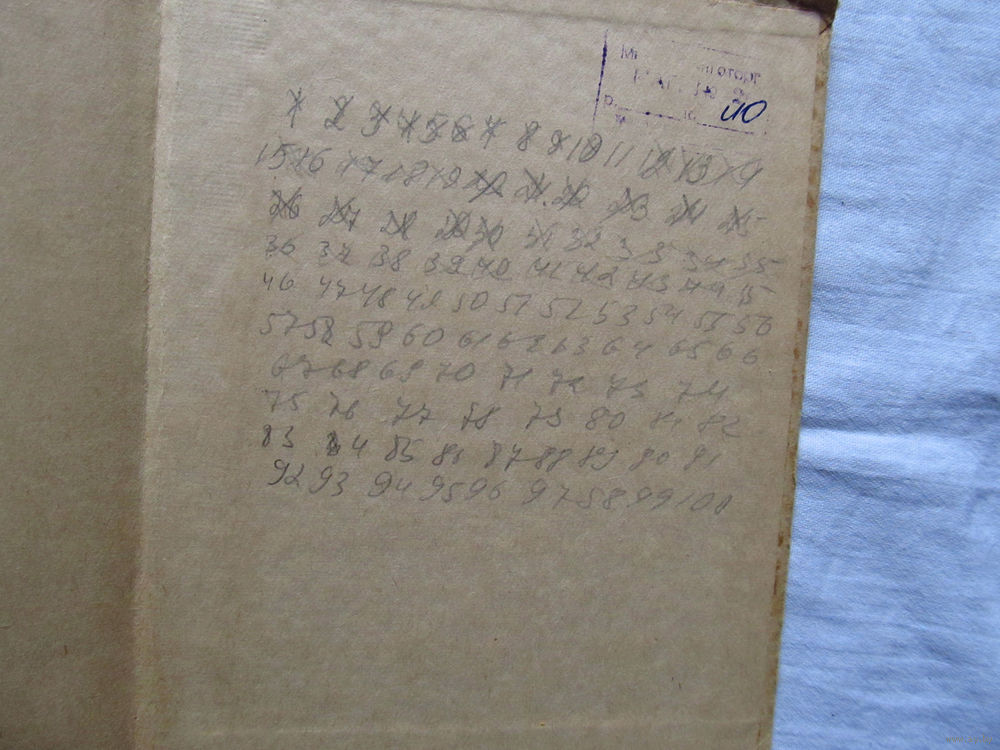 40
1 2 3 4 5 6 7 8 9 10 11 12 13 14
15 16 17 18 19 20 21 22 23 24 25
26 27 28 29 30 31 32 33 34 35
36 37 38 39 40 41 42 43 44 45
46 47 48 49 50 51 52 53 54 55 56
57 58 59 60 61 62 63 64 65 66
67 68 69 70 71 72 73 74
75 76 77 78 79 80 81 82
83 84 85 86 87 88 89 90 91
92 93 94 95 96 97 98 99 100